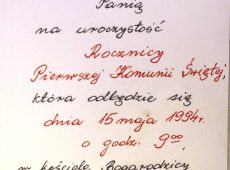 Panią
na uroczystość
Rocznicy
Pierwszej Komunii Świętej,
która odbędzie się
dnia 15 maja 1994r.
o godz. 9⁰⁰,
w kościele Bogarodzicy